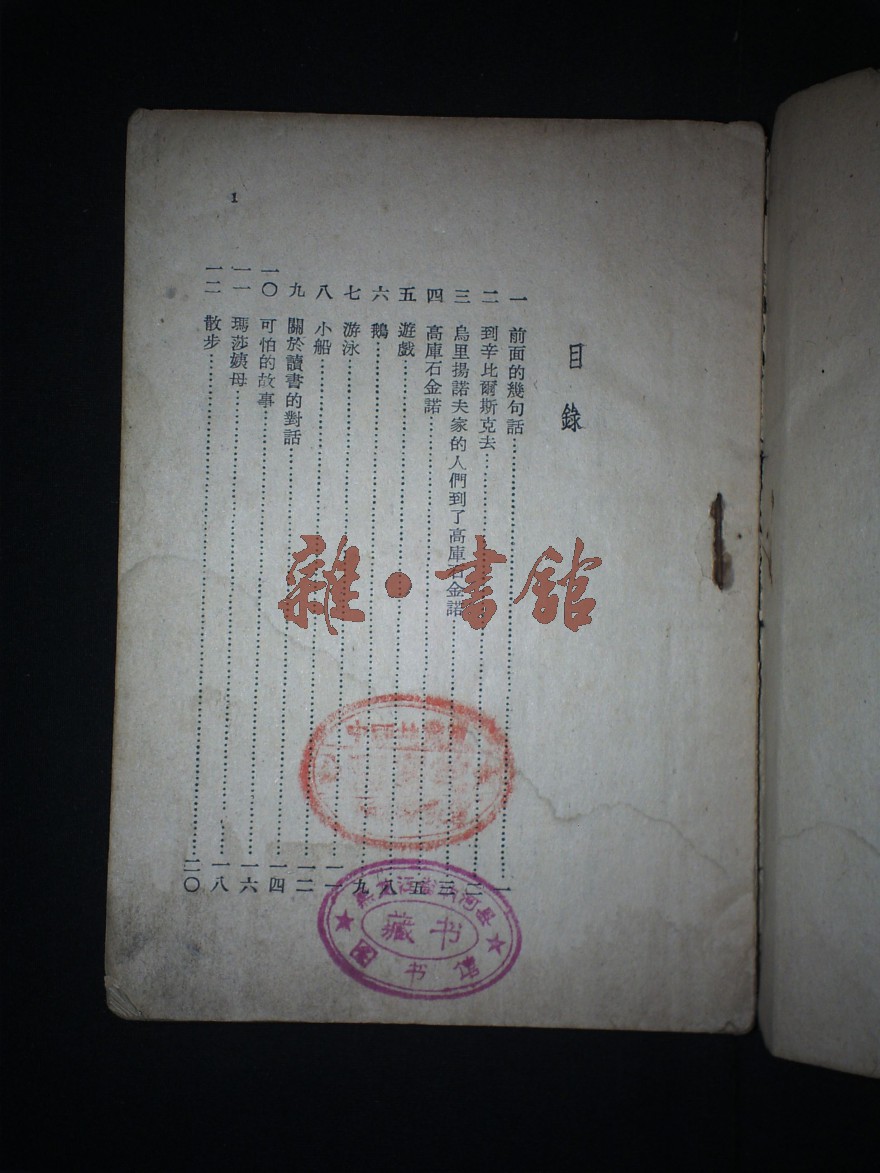 目錄
一 前面的幾句話……一
二 到辛比爾斯克去……二
三 烏里揚諾夫家的人們到了高庫石金諾……三
四 高庫石金諾……五
五 遊戲……八
六 鵝……九
七 游泳……一一
八 小船……一二
九 關於讀書的對話……一四
一〇 可怕的故事……一六
一一 瑪莎姨母……一八
一二 散步……二〇
1
雜·書館
河县
藏书
图书馆